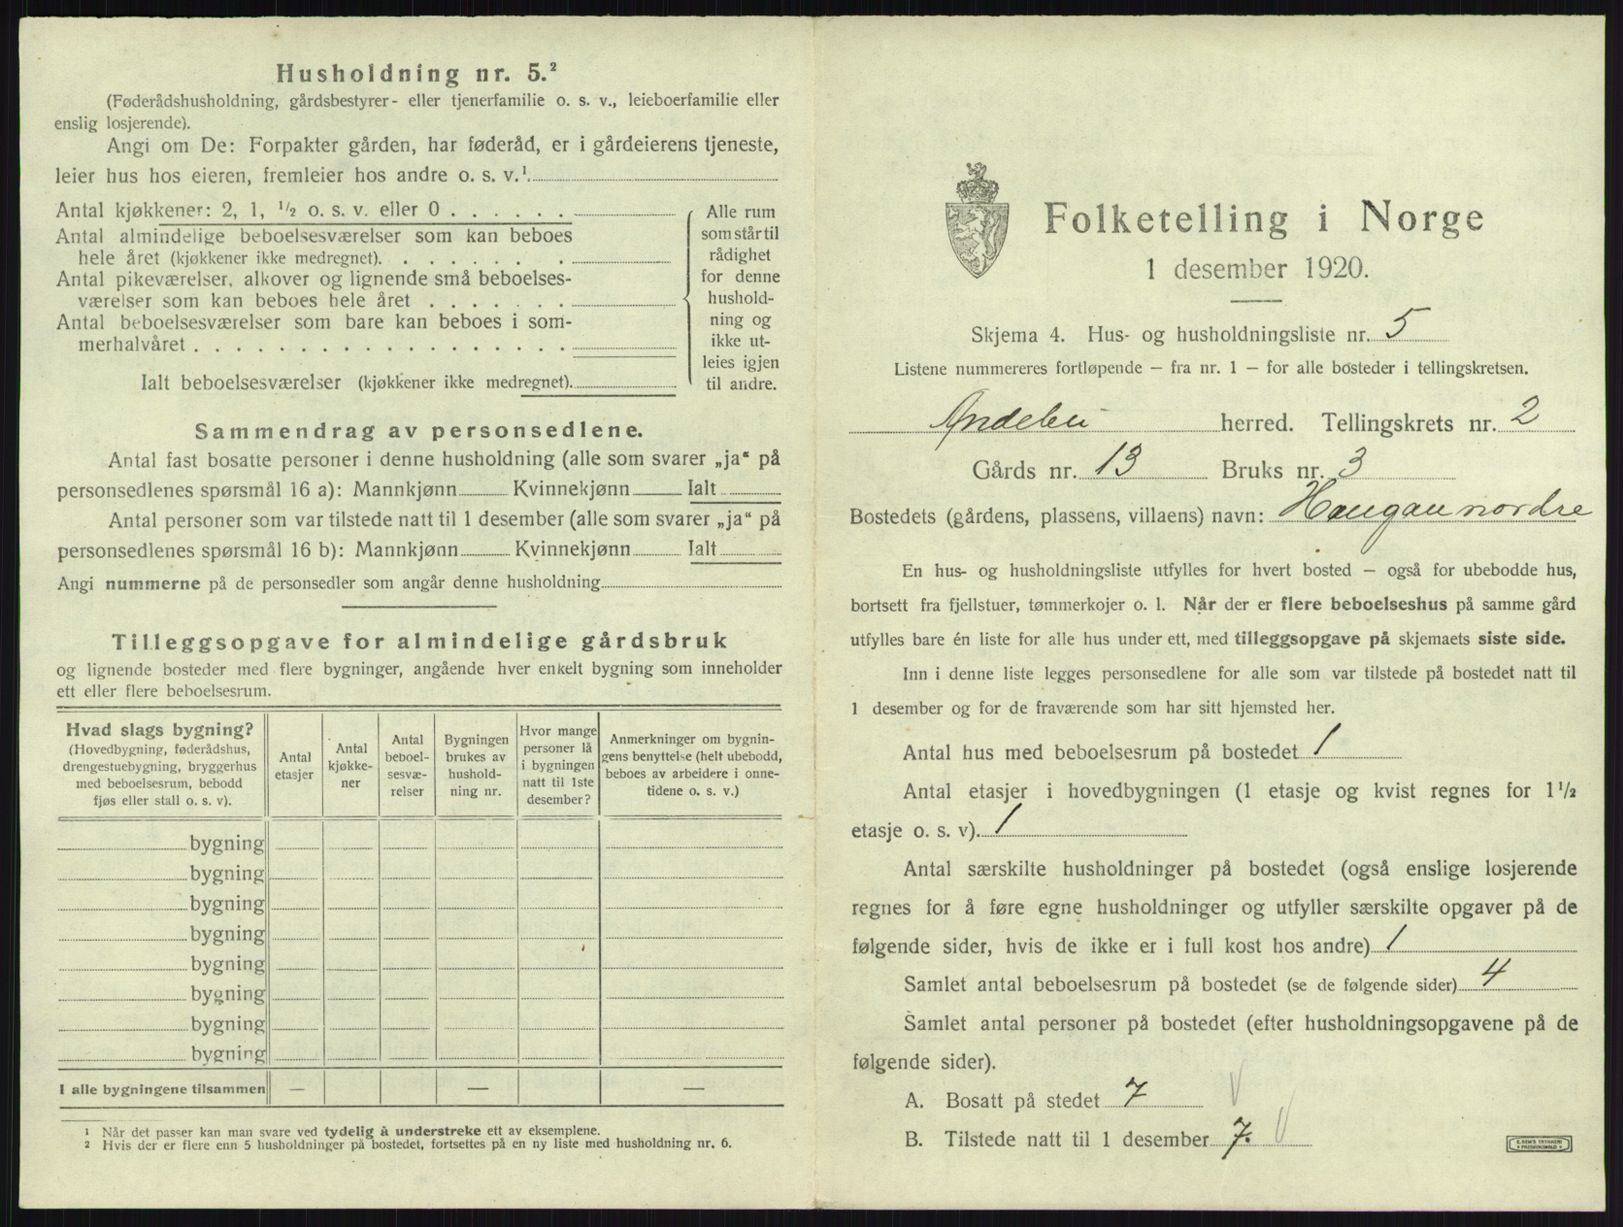 Husholdning nr. 5.²
(Føderådshusholdning, gårdsbestyrer- eller tjenerfamilie o. s. v., leieboerfamilie eller
enslig losjerende).
Angi om De: Forpakter gården, har føderåd, er i gårdeierens tjeneste,
leier hus hos eieren, fremleier hos andre o. s. v.¹
Antal kjøkkener: 2, 1, ½ o. s. v. eller 0 . . . . . .
Antal almindelige beboelsesværelser som kan beboes
hele året (kjøkkener ikke medregnet). . . . . . . .
Antal pikeværelser, alkover og lignende små beboelses-
værelser som kan beboes hele året . . . . . . .
Antal beboelsesværelser som bare kan beboes i som-
merhalvåret . . . . . . . . . . . . . . . . . .
Ialt beboelsesværelser (kjøkkener ikke medregnet).
Alle rum
som står til
rådighet
for denne
hushold-
ning og
ikke ut-
leies igjen
til andre.
Sammendrag av personsedlene.
Antal fast bosatte personer i denne husholdning (alle som svarer „ja“ på
personsedlenes spørsmål 16 a): Mannkjønn Kvinnekjønn Ialt
Antal personer som var tilstede natt til 1 desember (alle som svarer „ja“ på
personsedlenes spørsmål 16 b): Mannkjønn Kvinnekjønn Ialt
Angi nummerne på de personsedler som angår denne husholdning
Tilleggsopgave for almindelige gårdsbruk
og lignende bosteder med flere bygninger, angående hver enkelt bygning som inneholder
ett eller flere beboelsesrum.
Hvad slags bygning?
(Hovedbygning, føderådshus,
drengestuebygning, bryggerhus
med beboelsesrum, bebodd
fjøs eller stall o. s. v).
Antal
etasjer
Antal
kjøkke-
ner
Antal
beboel-
sesvæ-
relser
Bygningen
brukes av
hushold-
ning nr.
Hvor mange
personer lå
i bygningen
natt til 1ste
desember?
Anmerkninger om bygnin-
gens benyttelse (helt ubebodd,
beboes av arbeidere i onne-
tidene o. s. v.)
bygning
bygning
bygning
bygning
bygning
bygning
bygning
bygning
I alle bygningene tilsammen — — —
¹ Når det passer kan man svare ved tydelig å understreke ett av eksemplene.
² Hvis der er flere enn 5 husholdninger på bostedet, fortsettes på en ny liste med husholdning nr. 6.
Folketelling i Norge
1 desember 1920.
Skjema 4. Hus- og husholdningsliste nr. 5
Listene nummereres fortløpende — fra nr. 1 — for alle bosteder i tellingskretsen.
Andebu herred. Tellingskrets nr. 2
Gårds nr. 13 Bruks nr. 3
Bostedets (gårdens, plassens, villaens) navn: Haugan nordre
En hus- og husholdningsliste utfylles for hvert bosted — også for ubebodde hus,
bortsett fra fjellstuer, tømmerkojer o. l. Når der er flere beboelseshus på samme gård
utfylles bare én liste for alle hus under ett, med tilleggsopgave på skjemaets siste side.
Inn i denne liste legges personsedlene for alle som var tilstede på bostedet natt til
1 desember og for de fraværende som har sitt hjemsted her.
Antal hus med beboelsesrum på bostedet 1
Antal etasjer i hovedbygningen (1 etasje og kvist regnes for 1½
etasje o. s. v). 1
Antal særskilte husholdninger på bostedet (også enslige losjerende
regnes for å føre egne husholdninger og utfyller særskilte opgaver på de
følgende sider, hvis de ikke er i full kost hos andre) 1
Samlet antal beboelsesrum på bostedet (se de følgende sider) 4
Samlet antal personer på bostedet (efter husholdningsopgavene på de
følgende sider).
A. Bosatt på stedet 7 V
B. Tilstede natt til 1 desember 7. V